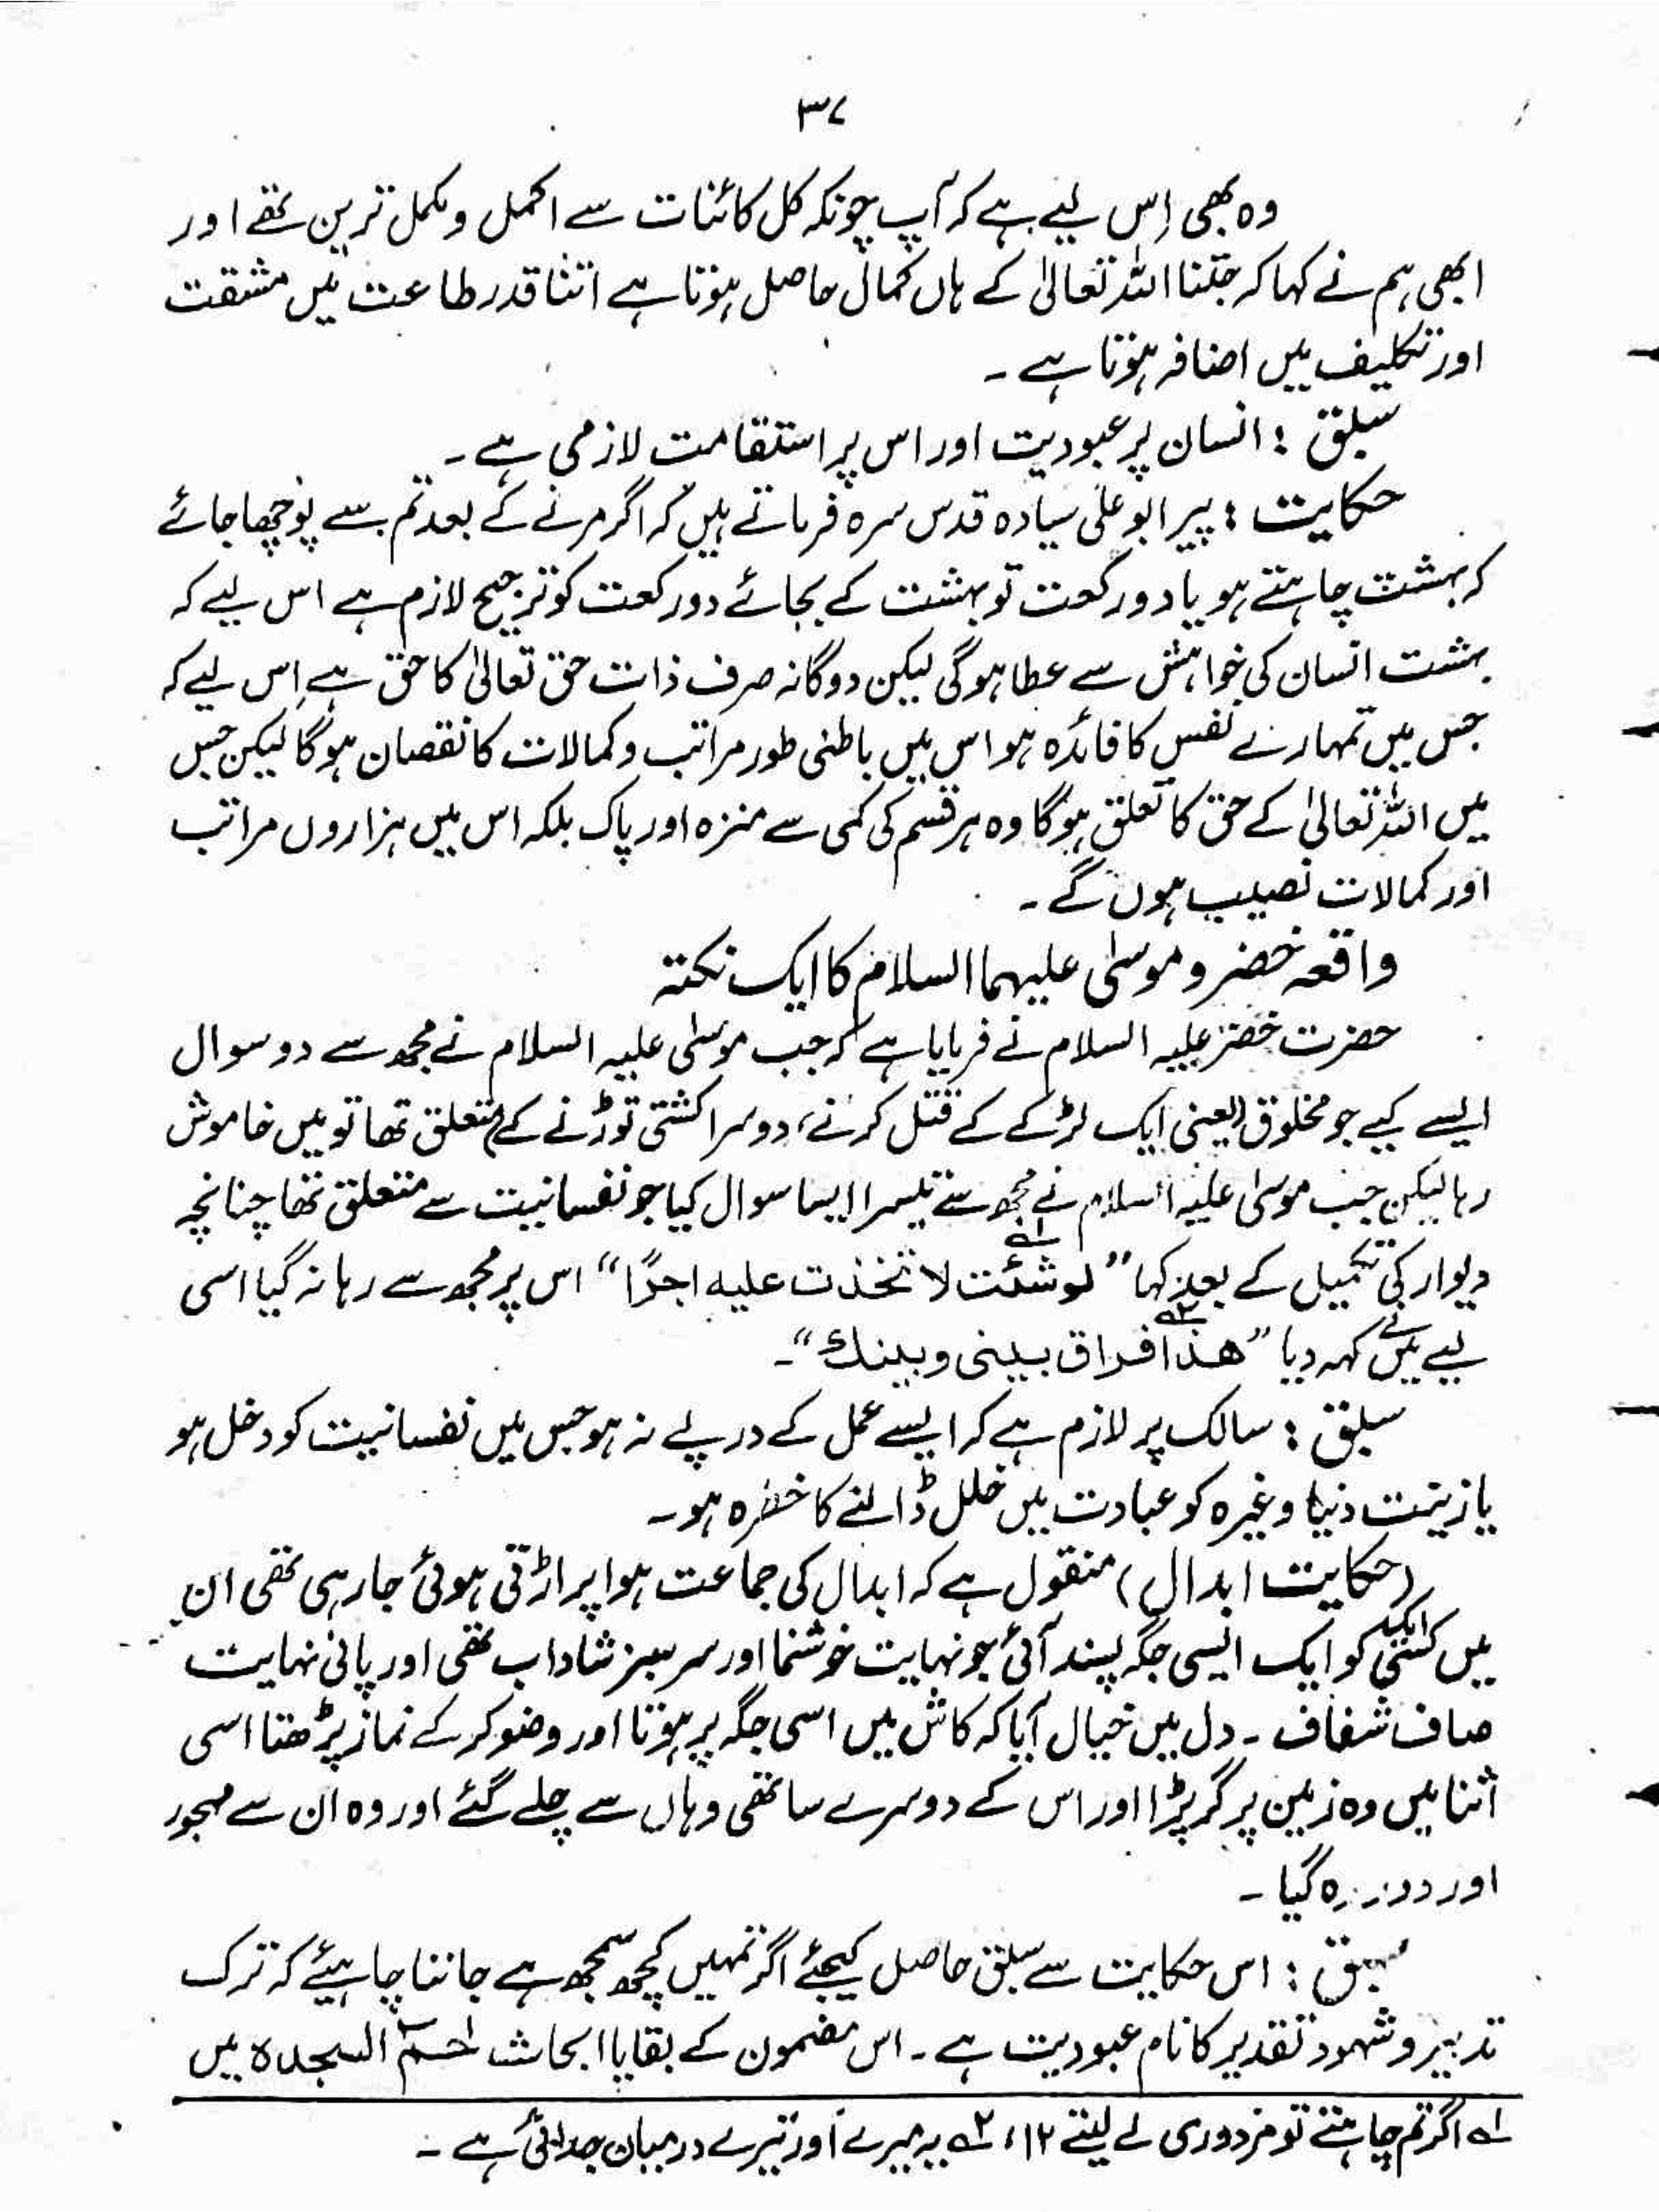 ۳۷
وہ بھی اِس لیے ہے کہ آپ چونکہ کل کائنات سے اکمل و مکمل ترین تھے اور
ابھی ہم نے کہا کہ جتنا اللہ تعالیٰ کے ہاں کمال حاصل ہوتا ہے اتنا قدر طاعت میں مشقت
اور تکلیف میں اضافہ ہوتا ہے ۔
سبق : انسان پر عبودیت اور اس پر استقامت لازمی ہے ۔
حکایت : پیر ابو علی سیاہ قدس سرہ فرماتے ہیں کہ اگر مرنے کے بعد تم سے پوچھا جائے
کہ بہشت چاہتے ہو یا دو رکعت تو بہشت کے بجائے دو رکعت کو ترجیح لازم ہے اس لیے کہ
بہشت انسان کی خواہش سے عطا ہو گی لیکن دوگانہ صرف ذات حق تعالیٰ کا حق ہے اِس لیے کہ
جس میں تمہارے نفس کا فائدہ ہو اس میں باطنی طور مراتب و کمالات کا نقصان ہو گا لیکن جس
میں اللہ تعالیٰ کے حق کا تعلق ہو گا وہ ہر قسم کی کمی سے منزہ اور پاک بلکہ اس میں ہزاروں مراتب
اور کمالات نصیب ہوں گے ۔
واقعہ خضر و موسیٰ علیہما السلام کا ایک نکتہ
حضرت خضر علیہ السلام نے فرمایا ہے کہ جب موسیٰ علیہ السلام نے مجھ سے دو سوال
ایسے کیے جو مخلوق (یعنی ایک لڑکے کے قتل کرنے، دوسرا کشتی توڑنے کے) متعلق تھا تو میں خاموش
رہا لیکن جب موسیٰ علیہ السلام نے مجھ سے تیسرا ایسا سوال کیا جو نفسانیت سے متعلق تھا چنانچہ
دیوار کی تکمیل کے بعد کہا ”لو شئت لا تخذت علیہ اجرًا“ ؎۱ اس پر مجھ سے رہا نہ گیا اسی
لیے میں نے کہہ دیا ”ھذا فراق بینی و بینك“ ؎۲ ۔
سبق : سالک پر لازم ہے کہ ایسے عمل کے درپے نہ ہو جس میں نفسانیت کو دخل ہو
یا زینت دنیا وغیرہ کو عبادت میں خلل ڈالنے کا خطرہ ہو ۔
(حکایت ابدال) منقول ہے کہ ابدال کی جماعت ہوا پر اڑتی ہوئی جا رہی تھی ان
میں کسی ایک کو ایک ایسی جگہ پسند آئی جو نہایت خوشنما اور سرسبز شاداب تھی اور پانی نہایت
صاف شفاف ۔ دل میں خیال آیا کہ کاش میں اسی جگہ پر ہوتا اور وضو کر کے نماز پڑھتا اسی
اثنا میں وہ زمین پر گر پڑا اور اس کے دوسرے ساتھی وہاں سے چلے گئے اور وہ ان سے مہجور
اور دور رہ گیا ۔
سبق : اس حکایت سے سبق حاصل کیجئے اگر تمہیں کچھ سمجھ ہے جاننا چاہیئے کہ ترک
تدبیر و شہود تقدیر کا نام عبودیت ہے ۔ اس مضمون کے بقایا ابحاث حٰمٓ السجدہ میں
؎۱ اگر تم چاہتے تو مزدوری لے لیتے ۱۲، ؎۲ یہ میرے اور تیرے درمیان جدائی ہے ۔